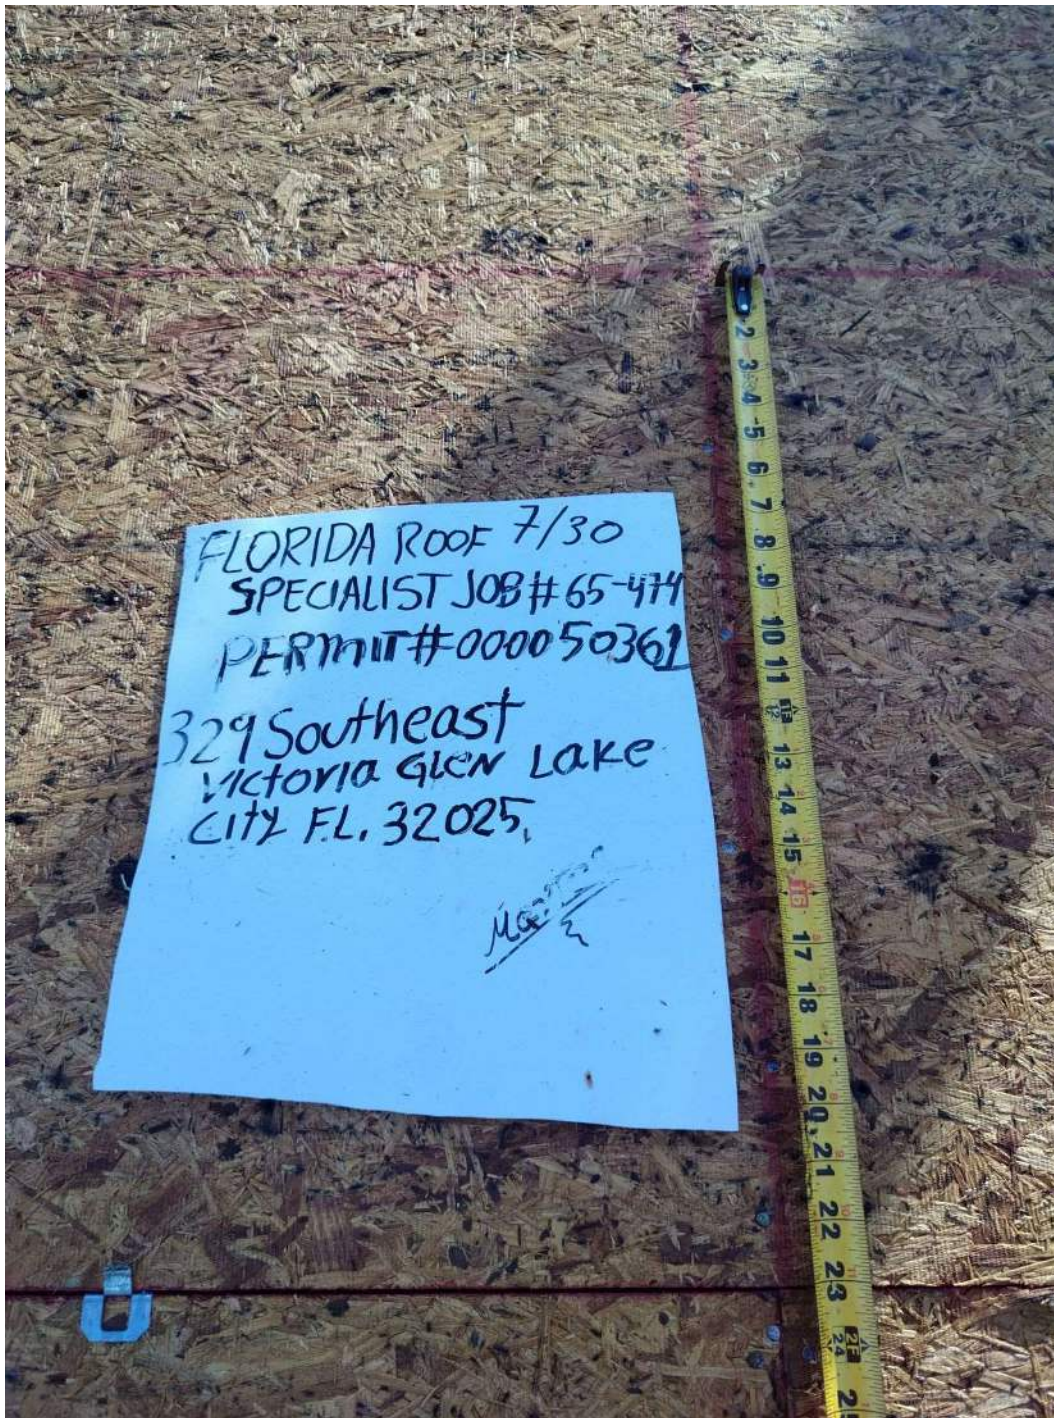 FLORIDA ROOF 7/30
SPECIALIST JOB # 65-474
PERMIT # 000050361
329 Southeast
Victoria GLEN Lake
City FL. 32025,
2
3
4
5
6
7
8
9
10
11
1F
12
13
14
15
16
17
18
19
20
21
22
23
2F
24